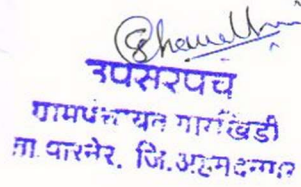 उपसरपंच
ग्रामपंचायत गारखिंडी
ता.पारनेर. जि.अहमदनगर